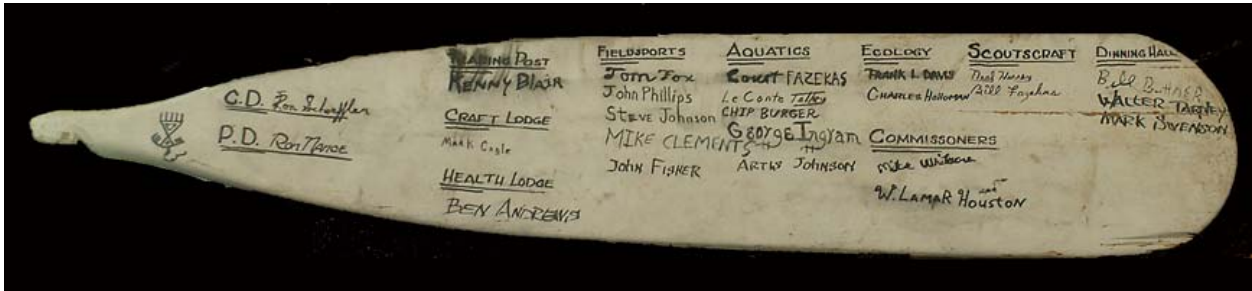 C.D. Ron Schaffler
P.D. Ron Nance
TRADING POST
KENNY BLAIR
CRAFT LODGE
Mark Cagle
HEALTH LODGE
BEN ANDREWS
FIELDSPORTS
Tom Fox
John Phillips
Steve Johnson
MIKE CLEMENTS
JOHN FISHER
AQUATICS
Court FAZEKAS
Le Conte Talley
CHIP BURGER
George Ingram
ARTIS JOHNSON
ECOLOGY
FRANK L DAVIS
CHARLES Holloman
COMMISSONERS
Mike
W. LAMAR HOUSTON
SCOUTSCRAFT
Bill Fazekas
DINNING HALL
Bill BUTTNER
WALLER TARVEY
MARK SWENSON